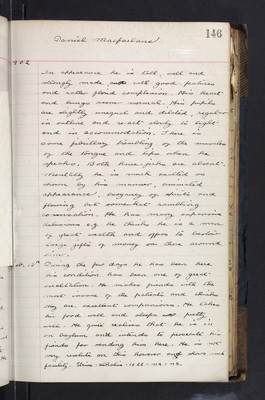 146
Daniel Macfarlane
1902
In appearance he is tall, well and
strongly made, with good features
and rather florid complexion. His heart
and lungs seem normal. His pupils
are slightly unequal and dilated, regular
in outline and react slowly to light
and in accommodation. There is
some fibrillary trembling of the muscles
of the tongue and lips when he
speaks. Both knee jerks are absent.
Mentally he is much exalted as
shown by his manner, animated
appearance, buoyancy of spirits and
flowing but somewhat rambling
conversation. He has many expansive
delusions e.g. he thinks he is a man
of great wealth and offers to bestow
large gifts of money on those around
him.
During the few days he has been here
his condition has been one of great
exaltation. He makes friends with the
most insane of the patients and thinks
they are excellent companions. He takes
his food well and sleeps pretty
well. He quite realises that he is in
an asylum and intends to prosecute his
friends for sending him here. He is not
very violent on this however and shows much
facility. Urine